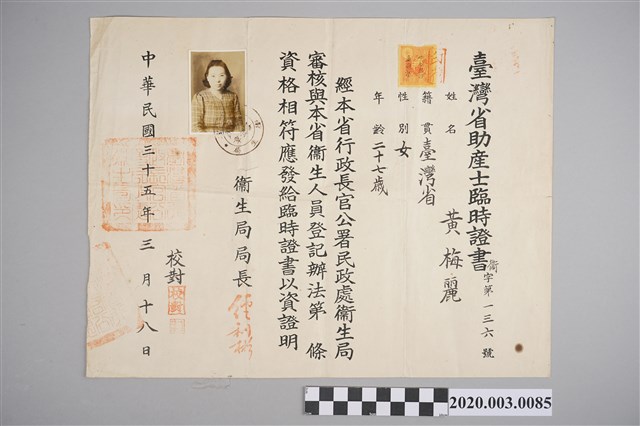 臺灣省助產士臨時證書
衞字第一三六號
姓名 黃梅麗
籍貫 臺灣省
性別 女
年齡 二十七歲
經本省行政長官公署民政處衞生局
審核與本省衞生人員登記辦法第 條
資格相符應發給臨時證書以資證明
衞生局局長
經利彬
校對
中華民國三十五年三月十八日
2020.003.0085